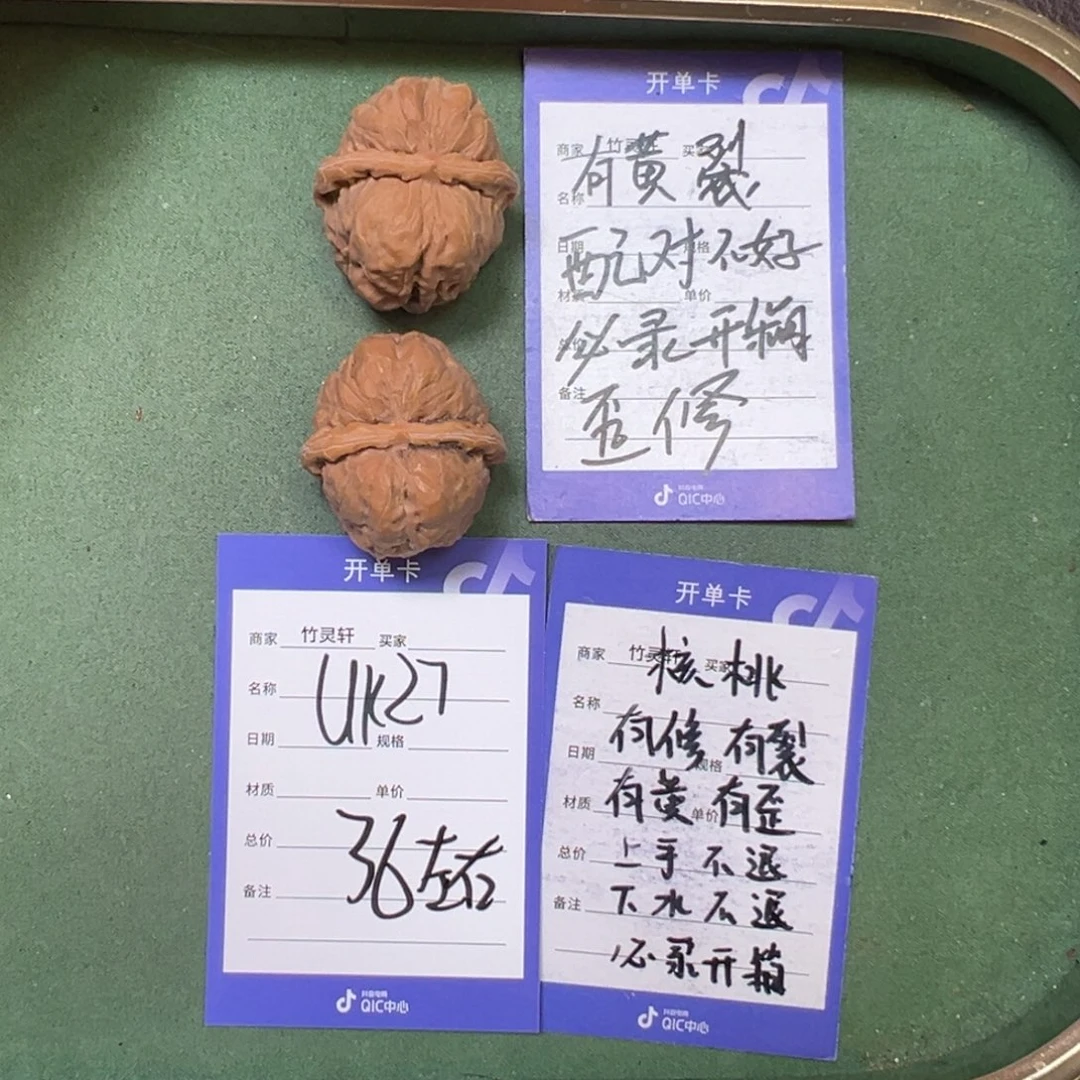 开单卡
商家 竹灵轩 买家
有黄裂
名称
日期 规格
配对不好
材质 单价
总价
必录开箱
备注
歪修
抖音电商
QIC中心
开单卡
商家 竹灵轩 买家
名称
UK27
日期 规格
材质 单价
总价
36左右
备注
抖音电商
QIC中心
开单卡
商家 竹灵轩 买家
核桃
名称
有修 有裂
日期 规格
有黄 有歪
材质 单价
上手不退
总价
下水不退
备注
必录开箱
抖音电商
QIC中心